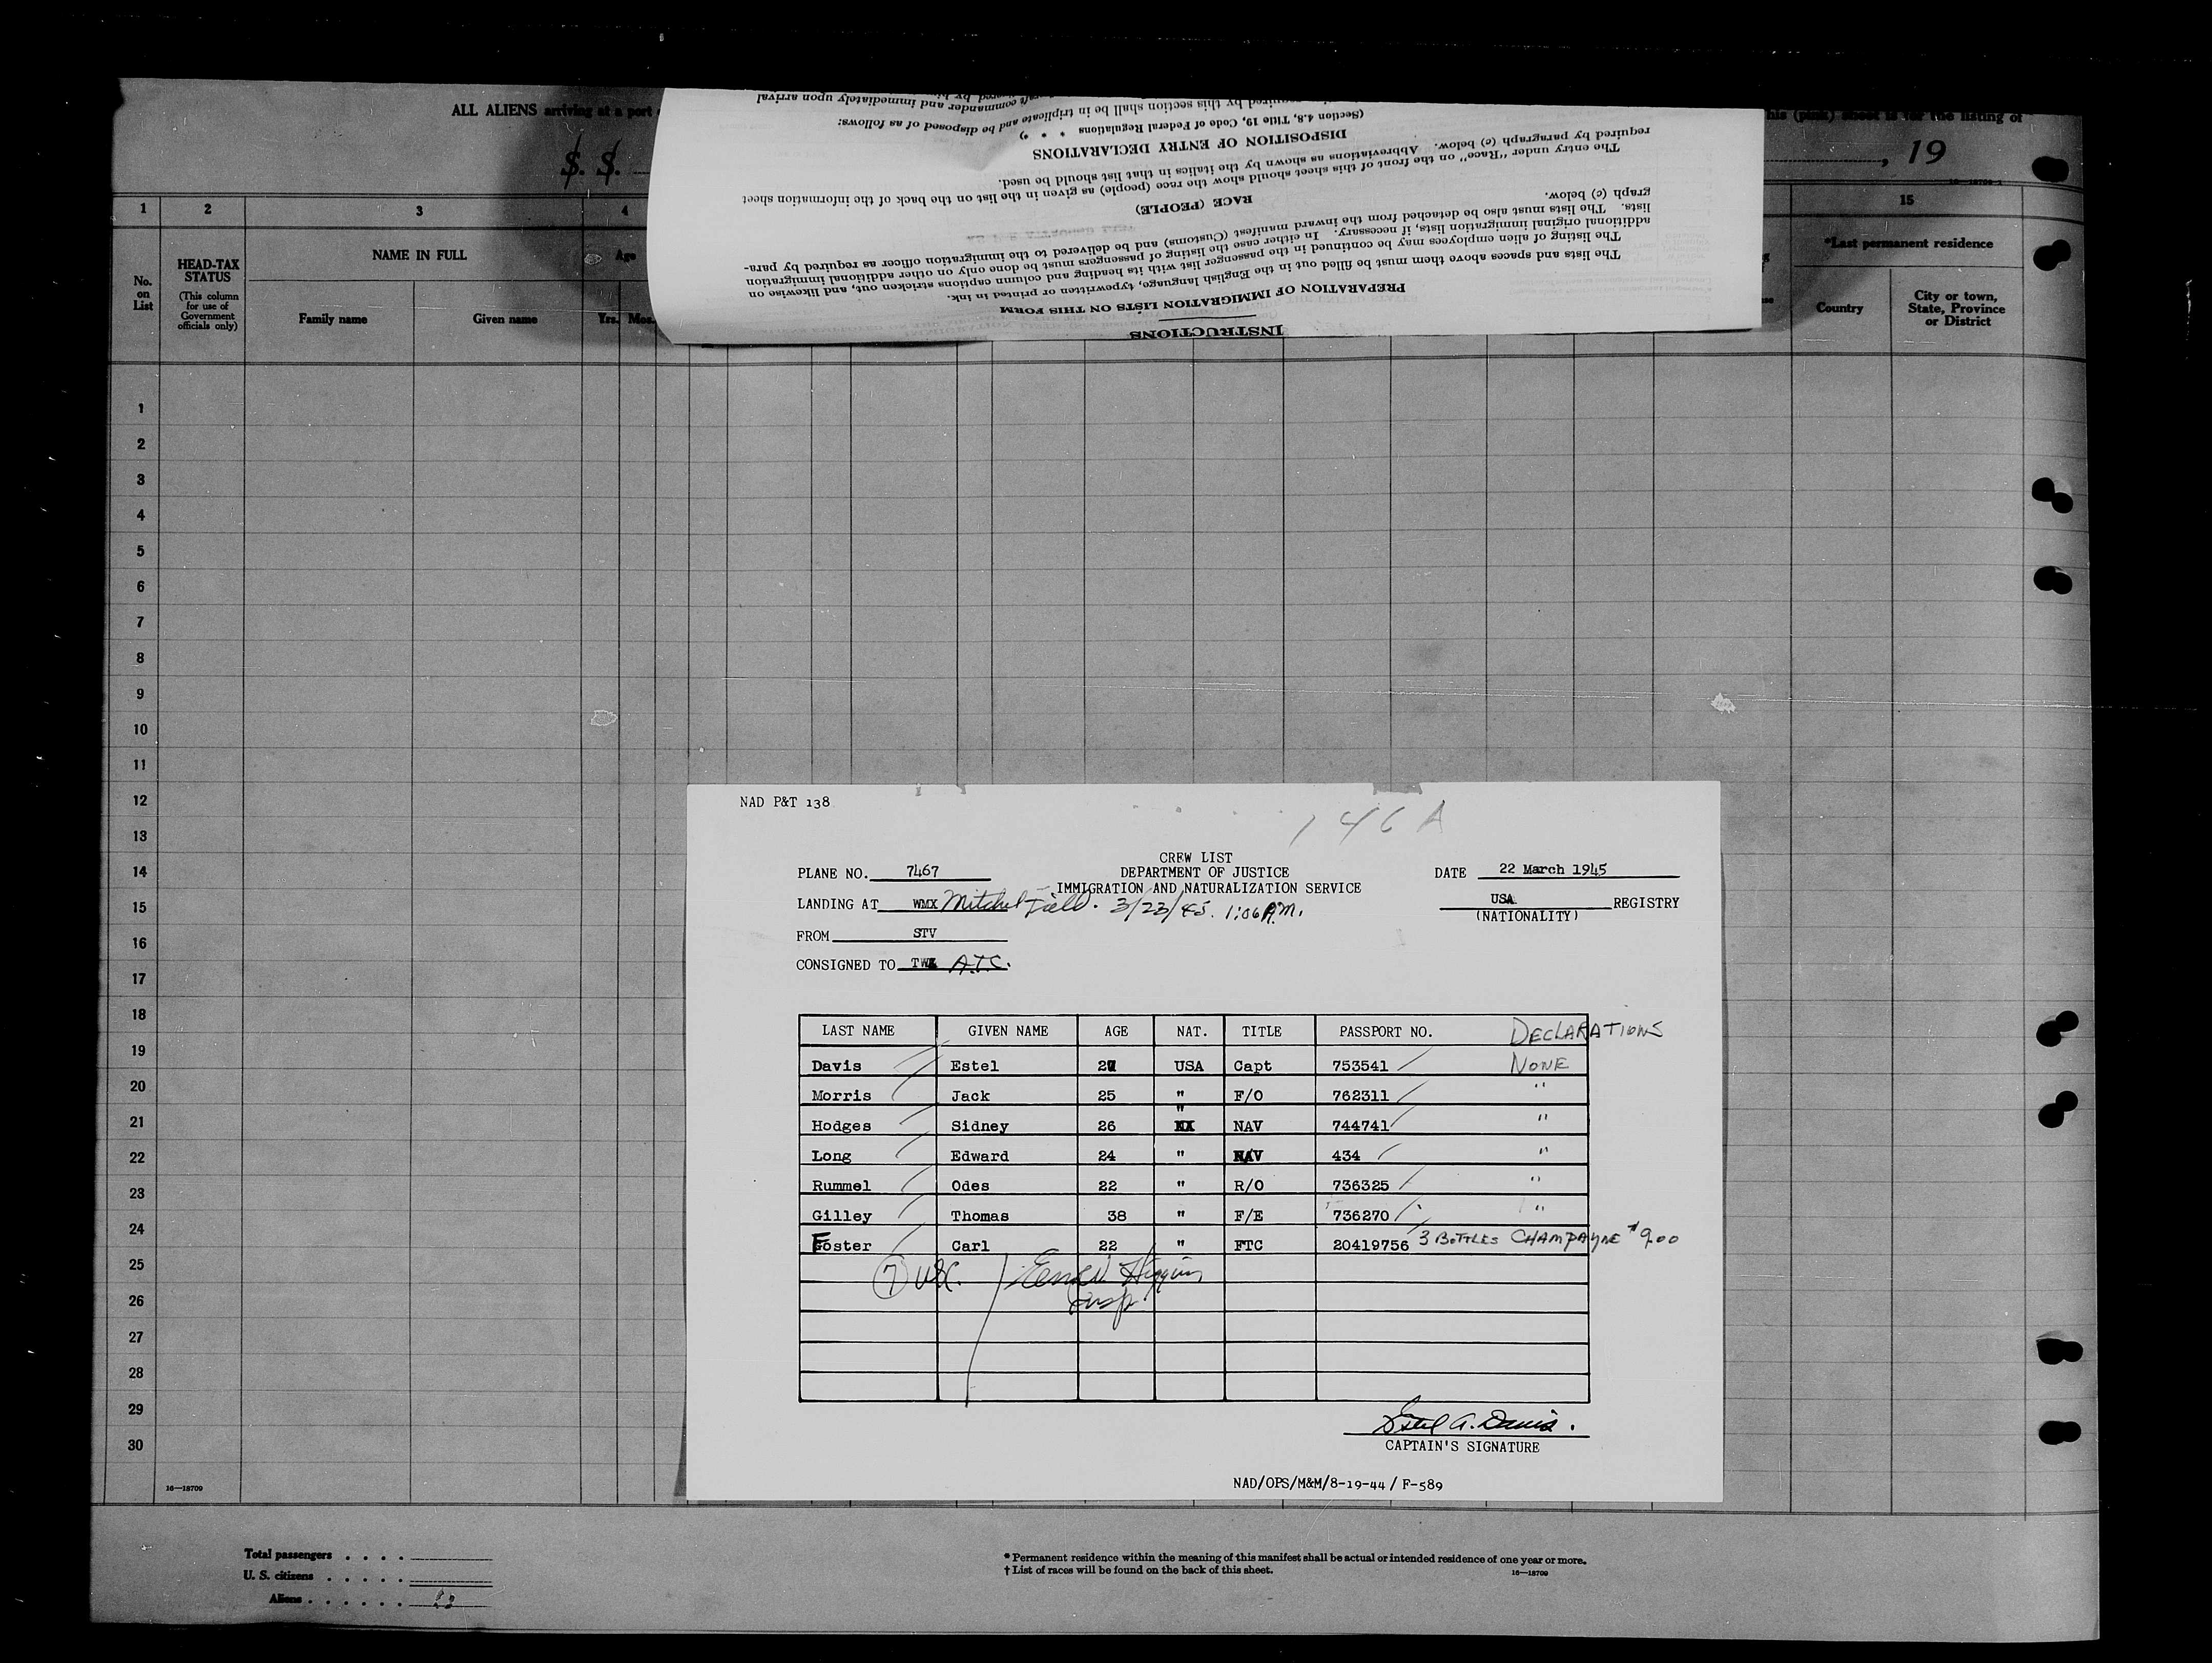 ALL ALIENS arriving at a port
his (pink) sheet is for the listing of
S. S.
, 19
raft commander and immediately upon arrival
required by this section shall be in triplicate and be disposed of as follows:
(Section 4.8, Title 19, Code of Federal Regulations * * *)
DISPOSITION OF ENTRY DECLARATIONS
required by paragraph (c) below. Abbreviations as shown by the italics in that list should be used.
The entry under "Race" on the front of this sheet should show the race (people) as given in the list on the back of the information sheet
RACE (PEOPLE)
graph (c) below.
lists. The lists must also be detached from the inward manifest (Customs) and be delivered to the immigration officer as required by para-
additional original immigration lists, if necessary. In either case the listing of passengers must be done only on other additional immigration
The listing of alien employees may be continued in the passenger list with its heading and column captions stricken out, and likewise on
The lists and spaces above them must be filled out in the English language, typewritten or printed in ink.
PREPARATION OF IMMIGRATION LISTS ON THIS FORM
INSTRUCTIONS
1 2 3 4 15
No. on List
HEAD-TAX STATUS
(This column for use of Government officials only)
NAME IN FULL
Family name Given name
Age
Yrs. Mos.
*Last permanent residence
Country
City or town, State, Province or District
1
2
3
4
5
6
7
8
9
10
11
12
13
14
15
16
17
18
19
20
21
22
23
24
25
26
27
28
29
30
16—18709
NAD P&T 138
146 A
CREW LIST
PLANE NO. 7467 DEPARTMENT OF JUSTICE DATE 22 March 1945
IMMIGRATION AND NATURALIZATION SERVICE
LANDING AT WMX Mitchel Field. 3/23/45. 1:06 A.M. USA REGISTRY
(NATIONALITY)
FROM STV
CONSIGNED TO A.T.C.
LAST NAME GIVEN NAME AGE NAT. TITLE PASSPORT NO. DECLARATIONS
Davis Estel 27 USA Capt 753541 NONE
Morris Jack 25 " F/O 762311 "
Hodges Sidney 26 " NAV 744741 "
Long Edward 24 " NAV 434 "
Rummel Odes 22 " R/O 736325 "
Gilley Thomas 38 " F/E 736270 "
Foster Carl 22 " FTC 20419756 3 BOTTLES CHAMPAYNE $9.00
7 USC. Higgins
Insp.
Estel A. Davis.
CAPTAIN'S SIGNATURE
NAD/OPS/M&M/8-19-44 / F-589
Total passengers . . . .
U. S. citizens . . . . .
Aliens . . . . . .
* Permanent residence within the meaning of this manifest shall be actual or intended residence of one year or more.
† List of races will be found on the back of this sheet.
16—18709